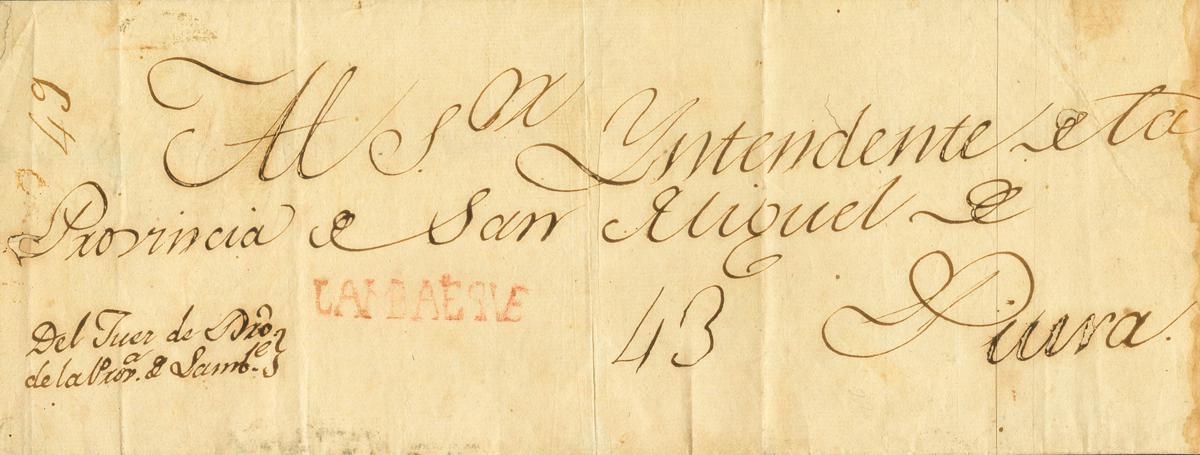 49
Al S.or Yntendente de la
Provincia de San Miguel de
Piura.
LAMBAEQUE
43
Del Juez de
de la Prov.a de Lamb.e